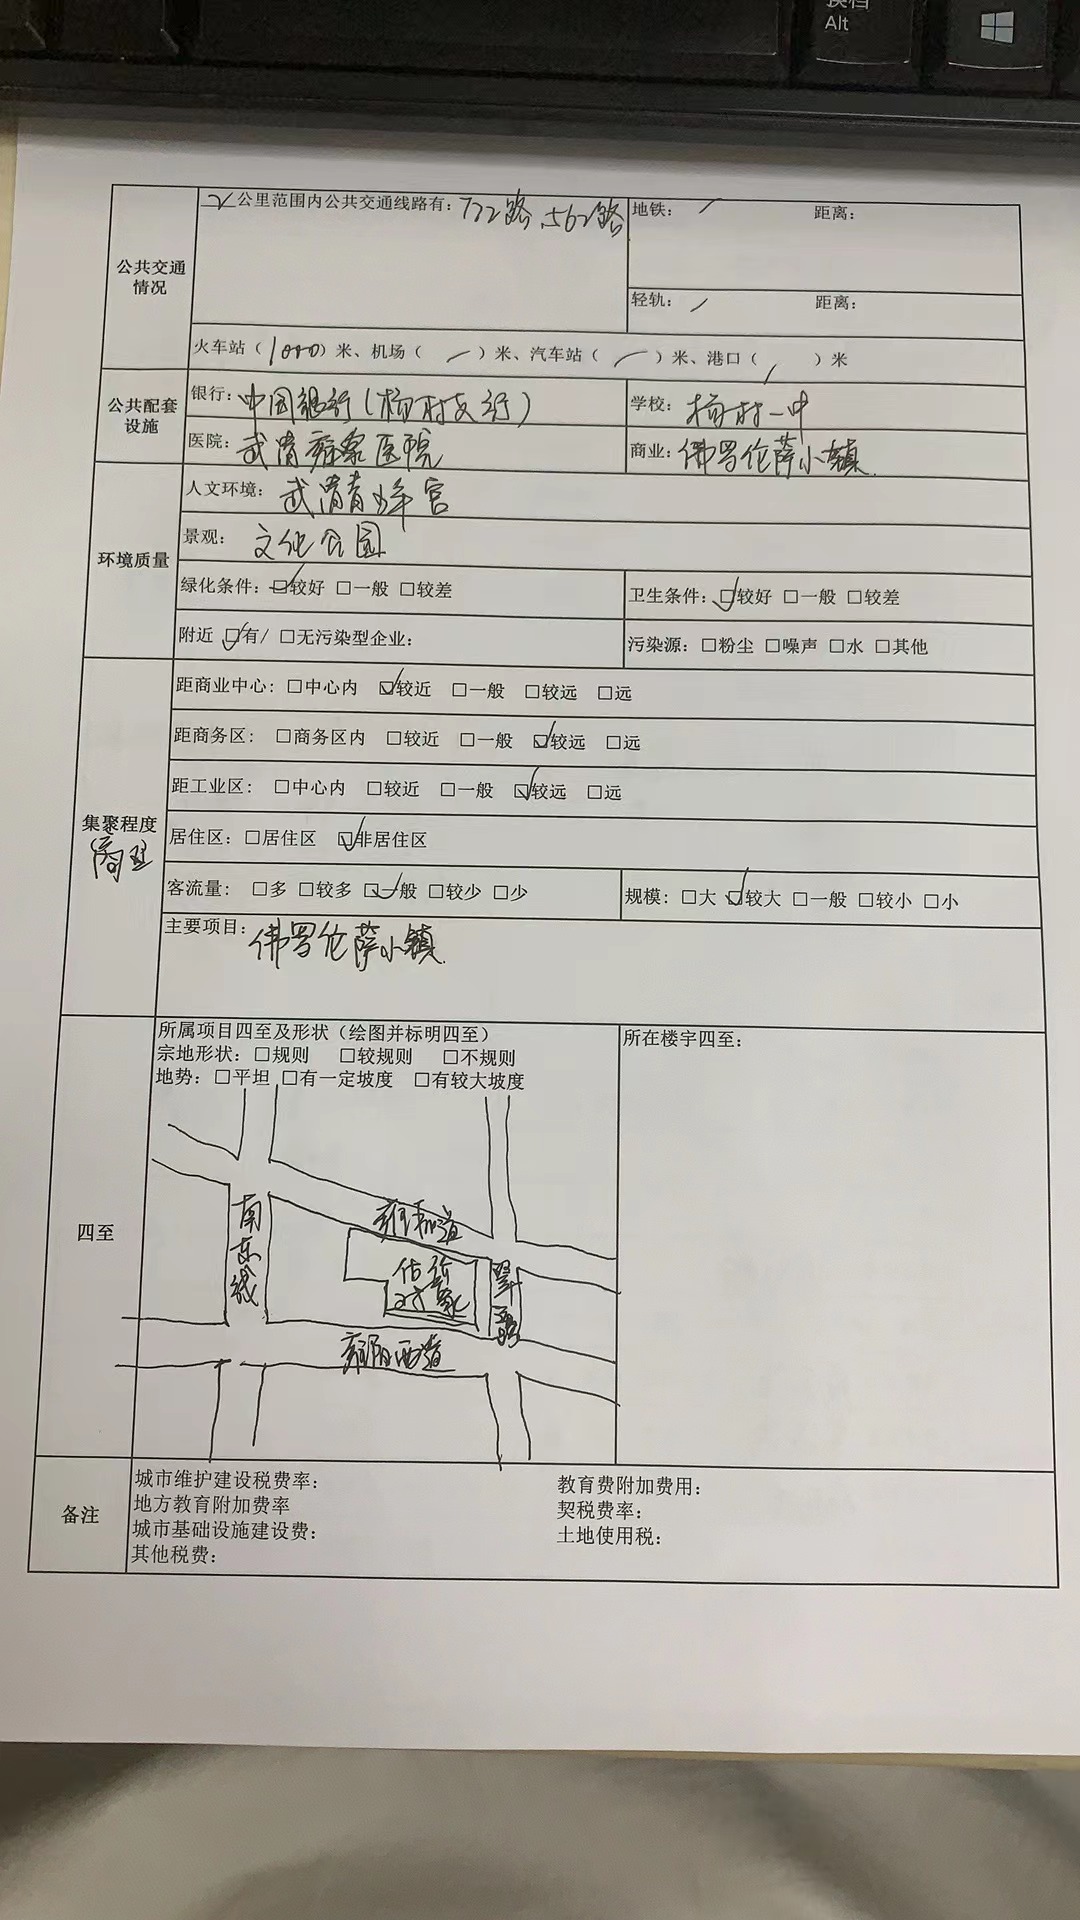 换档
Alt
公共交通情况
2公里范围内公共交通线路有：722路、562路
地铁： / 距离：
轻轨： / 距离：
火车站（1000）米、机场（ / ）米、汽车站（ / ）米、港口（ / ）米
公共配套设施
银行：中国银行（杨村支行）
学校：杨村一中
医院：武清 医院
商业：佛罗伦萨小镇
环境质量
人文环境：武清青少年宫
景观：文化公园
绿化条件：☑较好 □一般 □较差
卫生条件：☑较好 □一般 □较差
附近 ☑有/ □无污染型企业：
污染源：□粉尘 □噪声 □水 □其他
集聚程度
商业
距商业中心：□中心内 ☑较近 □一般 □较远 □远
距商务区：□商务区内 □较近 □一般 ☑较远 □远
距工业区：□中心内 □较近 □一般 ☑较远 □远
居住区：□居住区 ☑非居住区
客流量：□多 □较多 ☑一般 □较少 □少
规模：□大 ☑较大 □一般 □较小 □小
主要项目：佛罗伦萨小镇
四至
所属项目四至及形状（绘图并标明四至）
宗地形状：□规则 □较规则 □不规则
地势：□平坦 □有一定坡度 □有较大坡度
所在楼宇四至：
雍和道
南东线
估价对象
路
雍阳西道
备注
城市维护建设税费率：
教育费附加费用：
地方教育附加费率
契税费率：
城市基础设施建设费：
土地使用税：
其他税费：